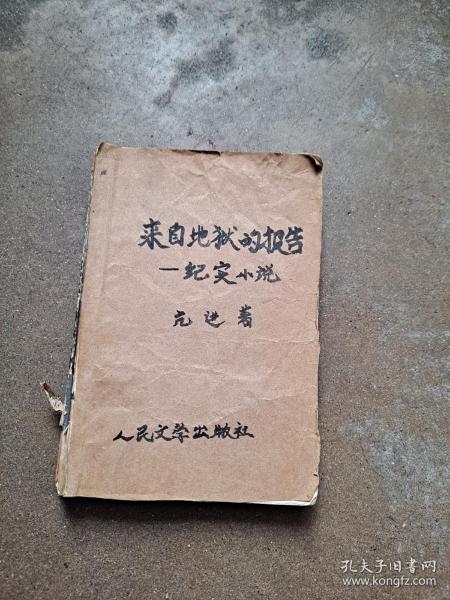 来自地狱的报告
一纪实小说
亢进著
人民文学出版社
孔夫子旧书网
www.kongfz.com